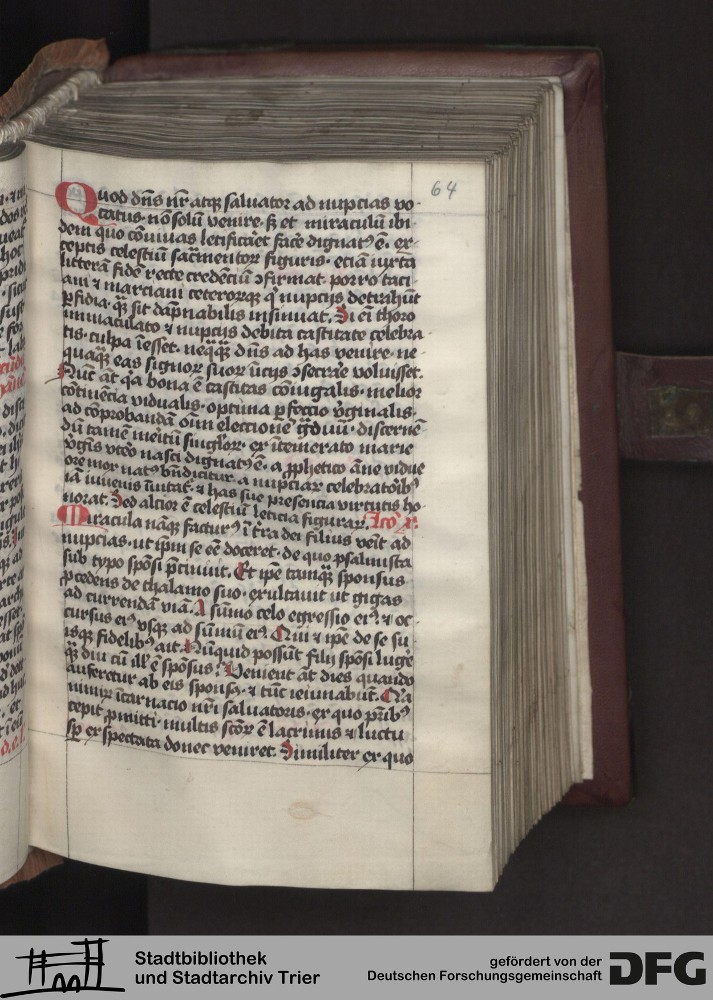 64
Quod dñs nr̄ atqꝫ saluator ad nuptias vo-
catus · nō solū venire · sꝫ et miraculū ibi-
dem quo cōuiuas letificaret facē dignatꝰ ē · ex-
ceptis celestiū sac̄mentoꝝ figuris · etiā iuxta
litterā fidē recte credēciū ꝯfirmat · porro taci-
ani ⁊ marciani ceteroꝝqꝫ q̄ nupcijs detrahūt
ꝑfidia · q̄ꝫ sit dāpnabilis insinuat. Si em̄ thoro
immaculato ⁊ nupcijs debita castitate celebra-
tis · culpa īesset · neq̄qꝫ dn̄s ad has venire · ne-
quaqꝫ eas signoꝝ suoꝝ īicijs ꝯsecrare voluisset.
Nūc at̄ qa bona ē castitas cōiugalis · melior
cōtinēcia vidualis · optima ꝑfeccio v̄ginalis ·
ad cōprobandā oīm eleccionē g̈duū · discernē
dū tamē meritū singloꝝ · ex ītemerato marie
v̄gīs vtero nasci dignatꝰ ē · a ꝓphetico āne vidue
ore mox natꝰ bn̄dicitur · a nupciaꝝ celebratoībꝰ
iā iuuenis īuitat᷑ · ⁊ has sue presencia virtutis ho-
norat. Sed alcior ē celestiū leticia figuraꝝ. Lc̄o x.
Miracula nāqꝫ facturꝰ ī t̄ra dei filius venit ad
nupcias · ut ip̄m se eē doceret · de quo psalmista
sub typo spōsi p̄cinuit. Et ip̄e tamqꝫ sponsus
ꝓcedens de thalamo suo · exultauit ut gigas
ad currendā viā. A sūmo celo egressio eiꝰ · ⁊ oc-
cursus eiꝰ vsqꝫ ad sūmū eiꝰ. Qui ⁊ ip̄e de se su-
isqꝫ fidelibꝰ ait. Nūquid possūt filij spōsi luge
q̄ꝫ diu cū ill̄ ē spōsus? Venient at̄ dies quando
auferetur ab eis sponsꝰ · ⁊ tūc ieiunabūt. Na
nimiꝝ īcarnacio nr̄i saluatoris · ex quo pr̄ibꝰ
cepit ꝓmitti · multis sc̄oꝝ ē lacrimis ⁊ luctu
sp̄ expectata donec veniret. Similiter ex quo
Stadtbibliothek
und Stadtarchiv Trier
gefördert von der
Deutschen Forschungsgemeinschaft
DFG